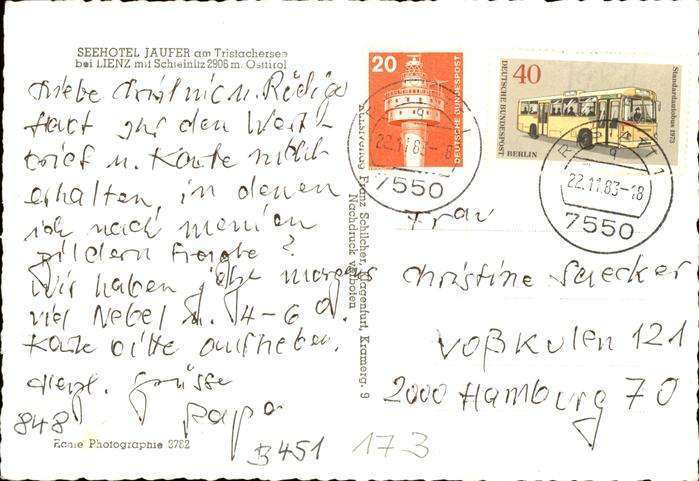 SEEHOTEL JAUFER am Tristachersee
bei LIENZ mit Schleinitz 2906 m, Osttirol
Liebe Christine u. Rüdiger
Habt Ihr den Wert-
brief u. Karte
erhalten, in denen
ich nach meinen
Bildern fragte?
Wir haben morgens
viel Nebel u. 4-6 °.
Karte bitte aufheben.
Herzl. Grüsse
Papa
848
Echte Photographie 3782
B451 173
Franz Schilcher, Klagenfurt, Kramerg. 9
Nachdruck verboten
20
DEUTSCHE BUNDESPOST
40
DEUTSCHE BUNDESPOST BERLIN
Standardautobus 1973
RASTATT 1
22.11.83-18
7550
RASTATT 1
22.11.83-18
7550
Frau
Christine Saecker
VOßKULEN 121
2000 Hamburg 70